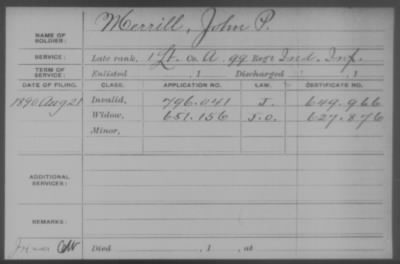 NAME OF SOLDIER: Merrill, John P.
SERVICE: Late rank, 1 Lt. Co. A, 99 Reg't Ind. Inf.
TERM OF SERVICE: Enlisted , 1 Discharged , 1
DATE OF FILING. CLASS. APPLICATION NO. LAW. CERTIFICATE NO.
1890 Aug 21 Invalid, 796.041 J. 649.966
Widow, 651.156 J.O. 627.876
Minor,
ADDITIONAL SERVICES:
REMARKS:
Died , 1 , at